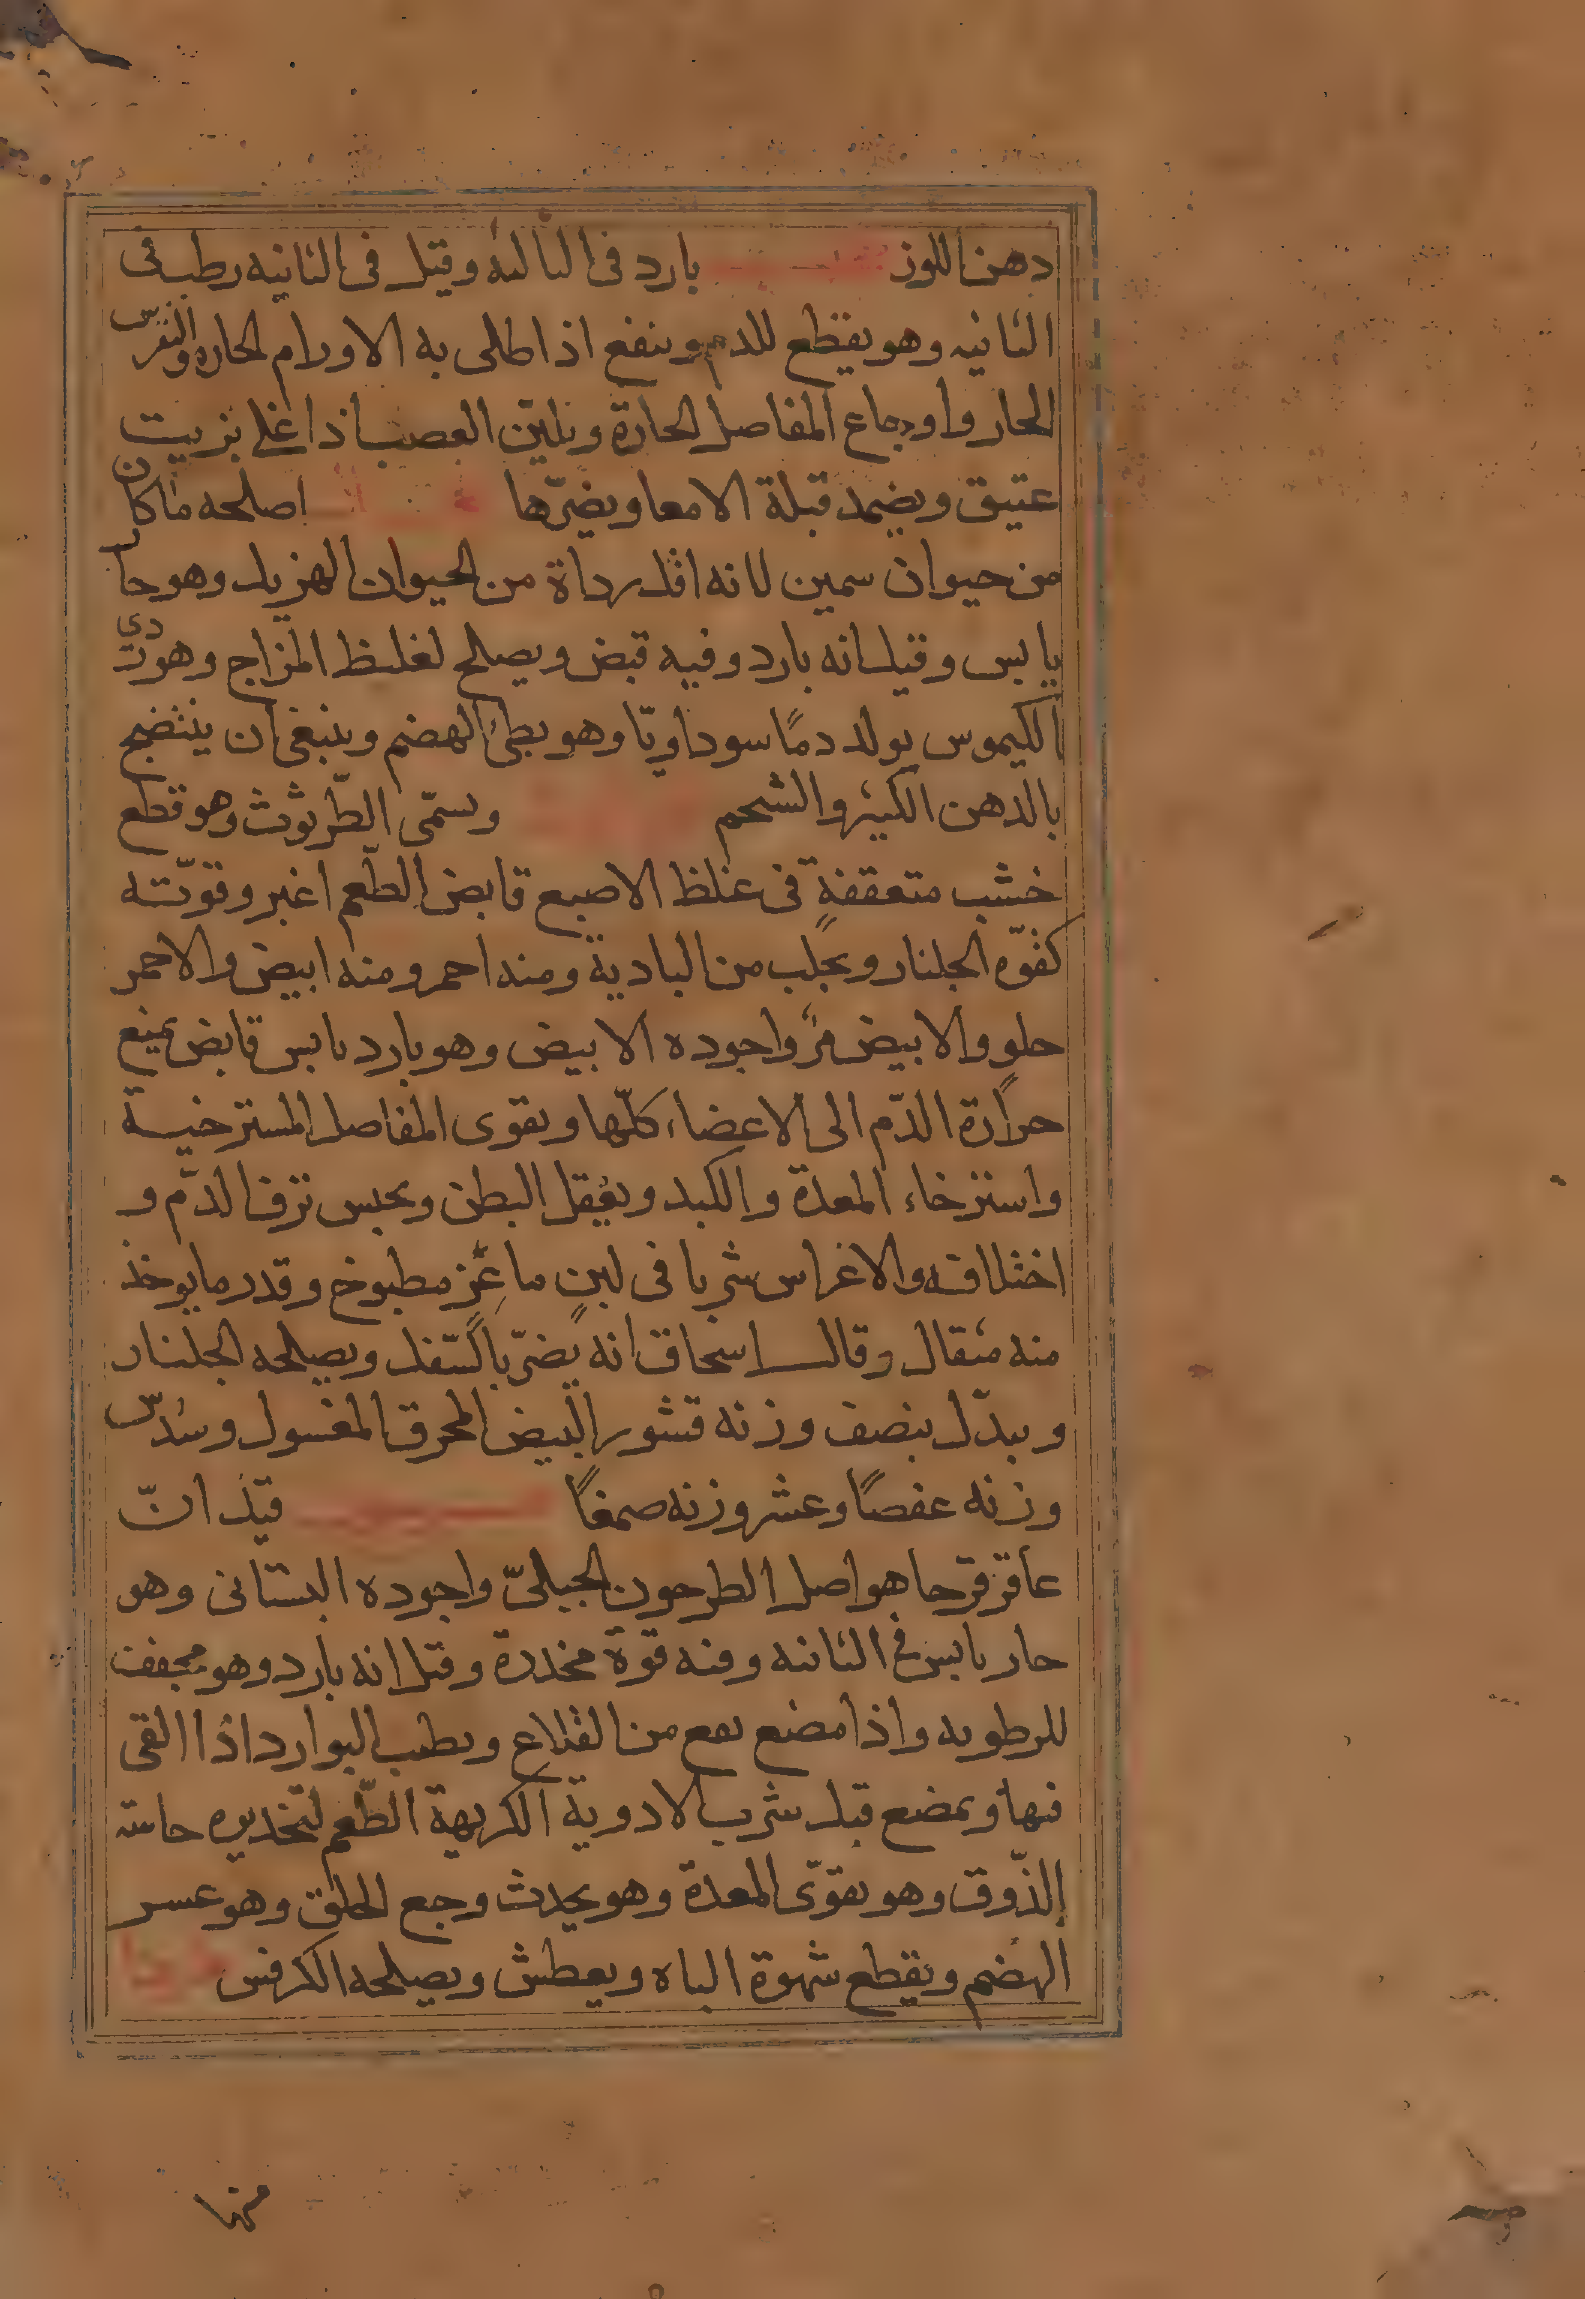 دهن اللوز بارد فى الثالثه وقيل فى الثانيه رطب فى
الثانيه وهو يقطع للدم وينفع اذا طلى به الاورام الحاره والنقرس
الحار واوجاع المفاصل الحارة ويلين العصب اذا غلى بزيت
عتيق ويضمد قبلة الامعا ويضرّها اصلحه ماكان
من حيوان سمين لانه اقل رداة من الحيوان الهزيل وهو حار
يابس وقيل انه بارد وفيه قبض ويصلح لغلظ المزاج وهو ردى
الكيموس يولد دمًا سوداويّا وهو بطئ الهضم وينبغى ان ينضج
بالدهن الكثير والشحم ويسمّى الطّرثوث وهو قطع
خشب متعقفةٍ فى غلظ الاصبع قابض الطّعم اغبر وقوّته
كقوّه الجلنار ويجلب من البادية ومنه احمر ومنه ابيض والاحمر
حلو والابيض مرّ واجوده الابيض وهو بارد يابس قابض يمنع
حرارة الدّم الى الاعضاء كلّها ويقوى المفاصل المسترخية
واسترخاء المعدة والكبد ويعقل البطن ويحبس نزف الدّم و
اختلافه والاغراس شربا فى لبن ماعز مطبوخ وقدر مايوخذ
منه مثقال وقال اسحاق انه يضرّ بالسّفل ويصلحه الجلنار
ويبدّل بنصف وزنه قشور البيض المحرق المغسول وسُدس
وزنه عفصًا وعشر وزنه صمغًا قيل انّ
عاقرقرحا هو اصل الطرخون الجبلىّ واجوده البستانى وهو
حار يابس فى الثانيه وفيه قوة مخدرة وقيل انه بارد وهو مجفف
للرطوبه واذا مضغ نفع من القلاع ويطيب البوارد اذا القى
فيها ويمضغ قبل شرب الادوية الكريهة الطّعم لتخديره حاسّة
الذّوق وهو يقوّى المعدة وهو يحدث وجع الحلق وهو عسر
الهضم ويقطع شهوة الباه ويعطش ويصلحه الكرفس